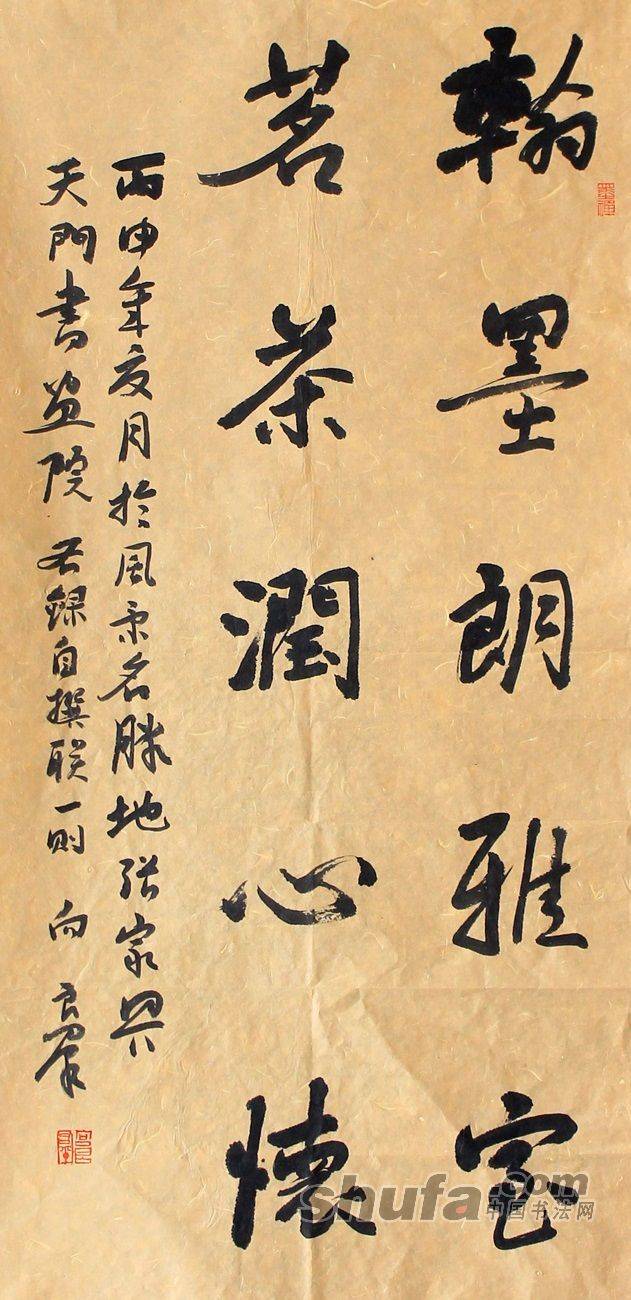 翰墨朗雅室
茗茶潤心懷
丙申年夏月於風景名勝地張家界
天門書畫院右錄自撰联一则 向良群
shufa.com
中国书法网